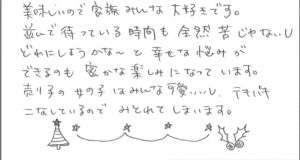 美味しいので家族みんな大好きです。
並んで待っている時間も全然苦じゃないし
どれにしようかな〜と幸せな悩みが
できるのも密かな楽しみになっています。
売り子の女の子はみんな可愛いし、テキパキ
こなしているのでみとれてしまいます。